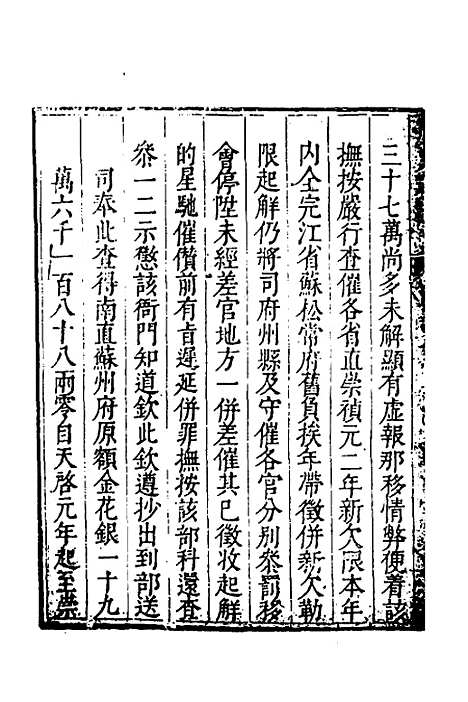 三十七萬尚多未解顯有虛報那移情弊便着該
撫按嚴行查催各省直崇禎元二年新欠限本年
內全完江省蘇松常府舊負挨年帶徵併新欠勒
限起解仍將司府州縣及守催各官分別叅罰移
會停陞未經差官地方一併差催其已徵收起解
的星馳催儹前有旨遲延併罪撫按該部科還查
叅一二示懲該衙門知道欽此欽遵抄出到部送
司奉此查得南直蘇州府原額金花銀一十九
萬六千一百八十八兩零自天啓元年起至崇